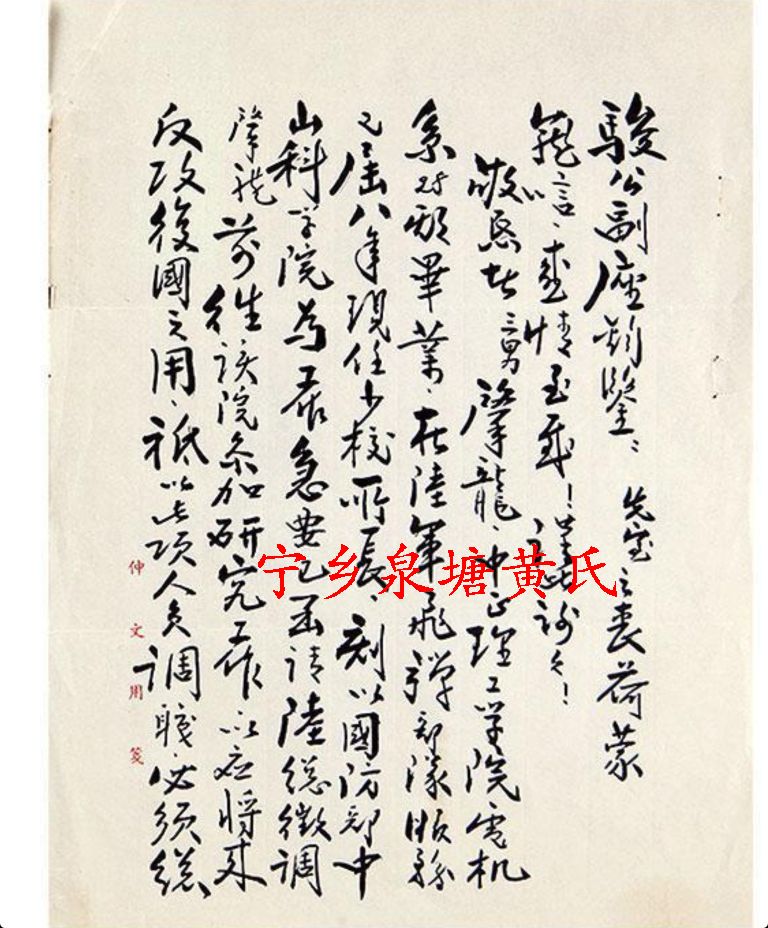 駿公副座勛鑒：先室之喪荷蒙
寵唁，盛情至感！謹此謝之！
敬啓者三男肇龍，中正理工学院電机
系25期畢業，在陸軍飛彈部隊服務
已屆八年現任少校所長，刻以國防部中
山科学院為工作急要已函請陸總徵調
肇龍前往該院參加研究工作以應將來
反攻復國之用，祗以此項人員調職必須總
仲文用箋
宁乡泉塘黄氏